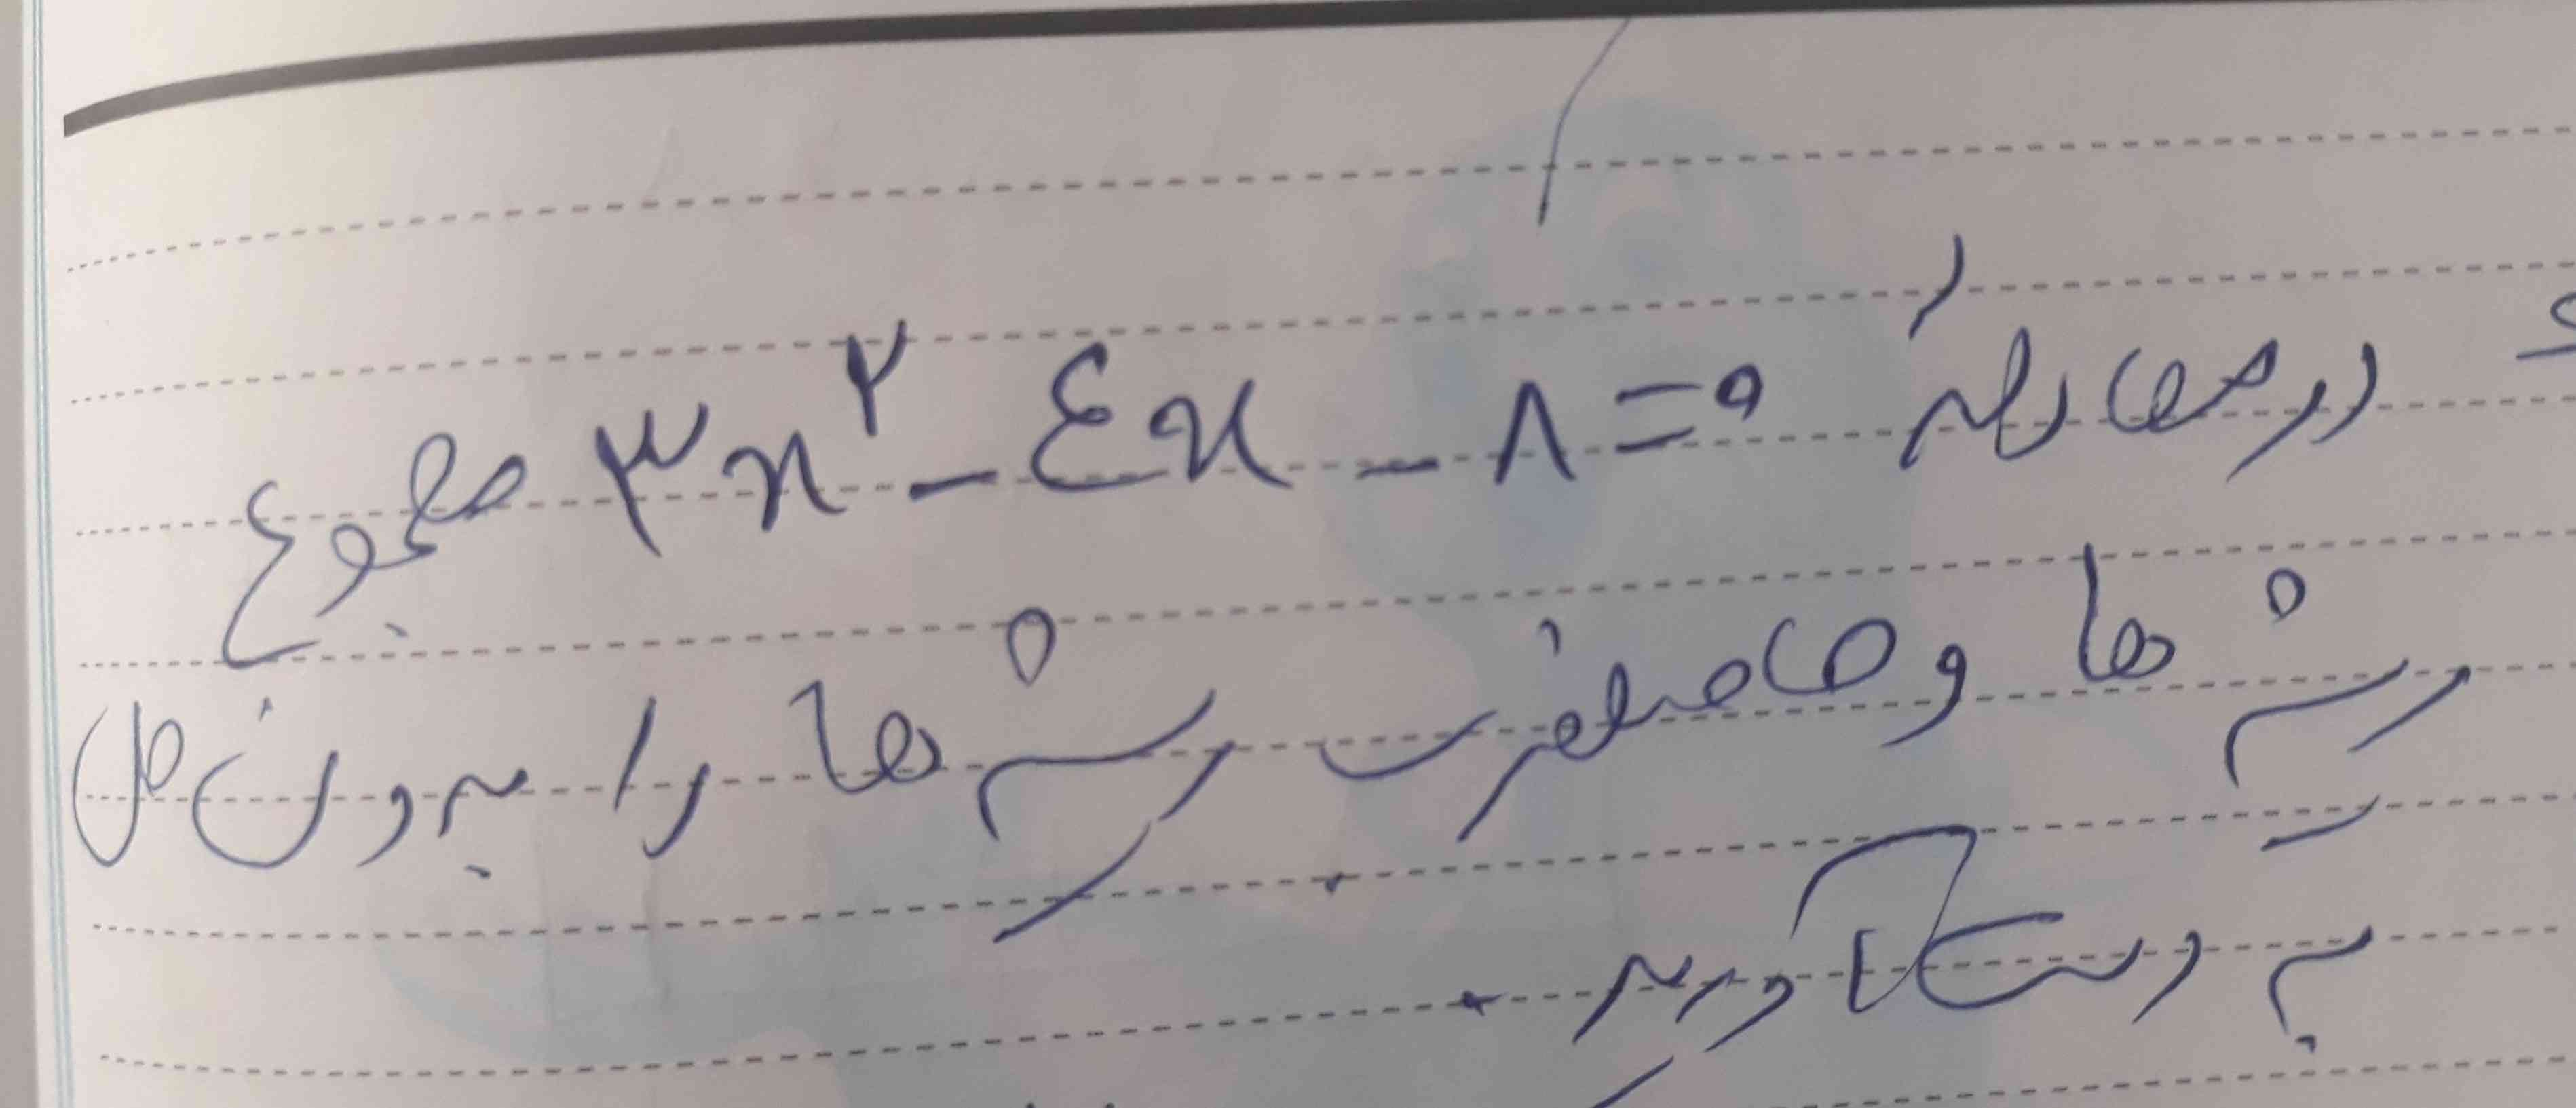 در معادلهٔ ۳x² - ۴x - ۸ = ۰ مجموع
ریشه ها و حاصلضرب ریشه ها را بدون حل
به دست آورید.